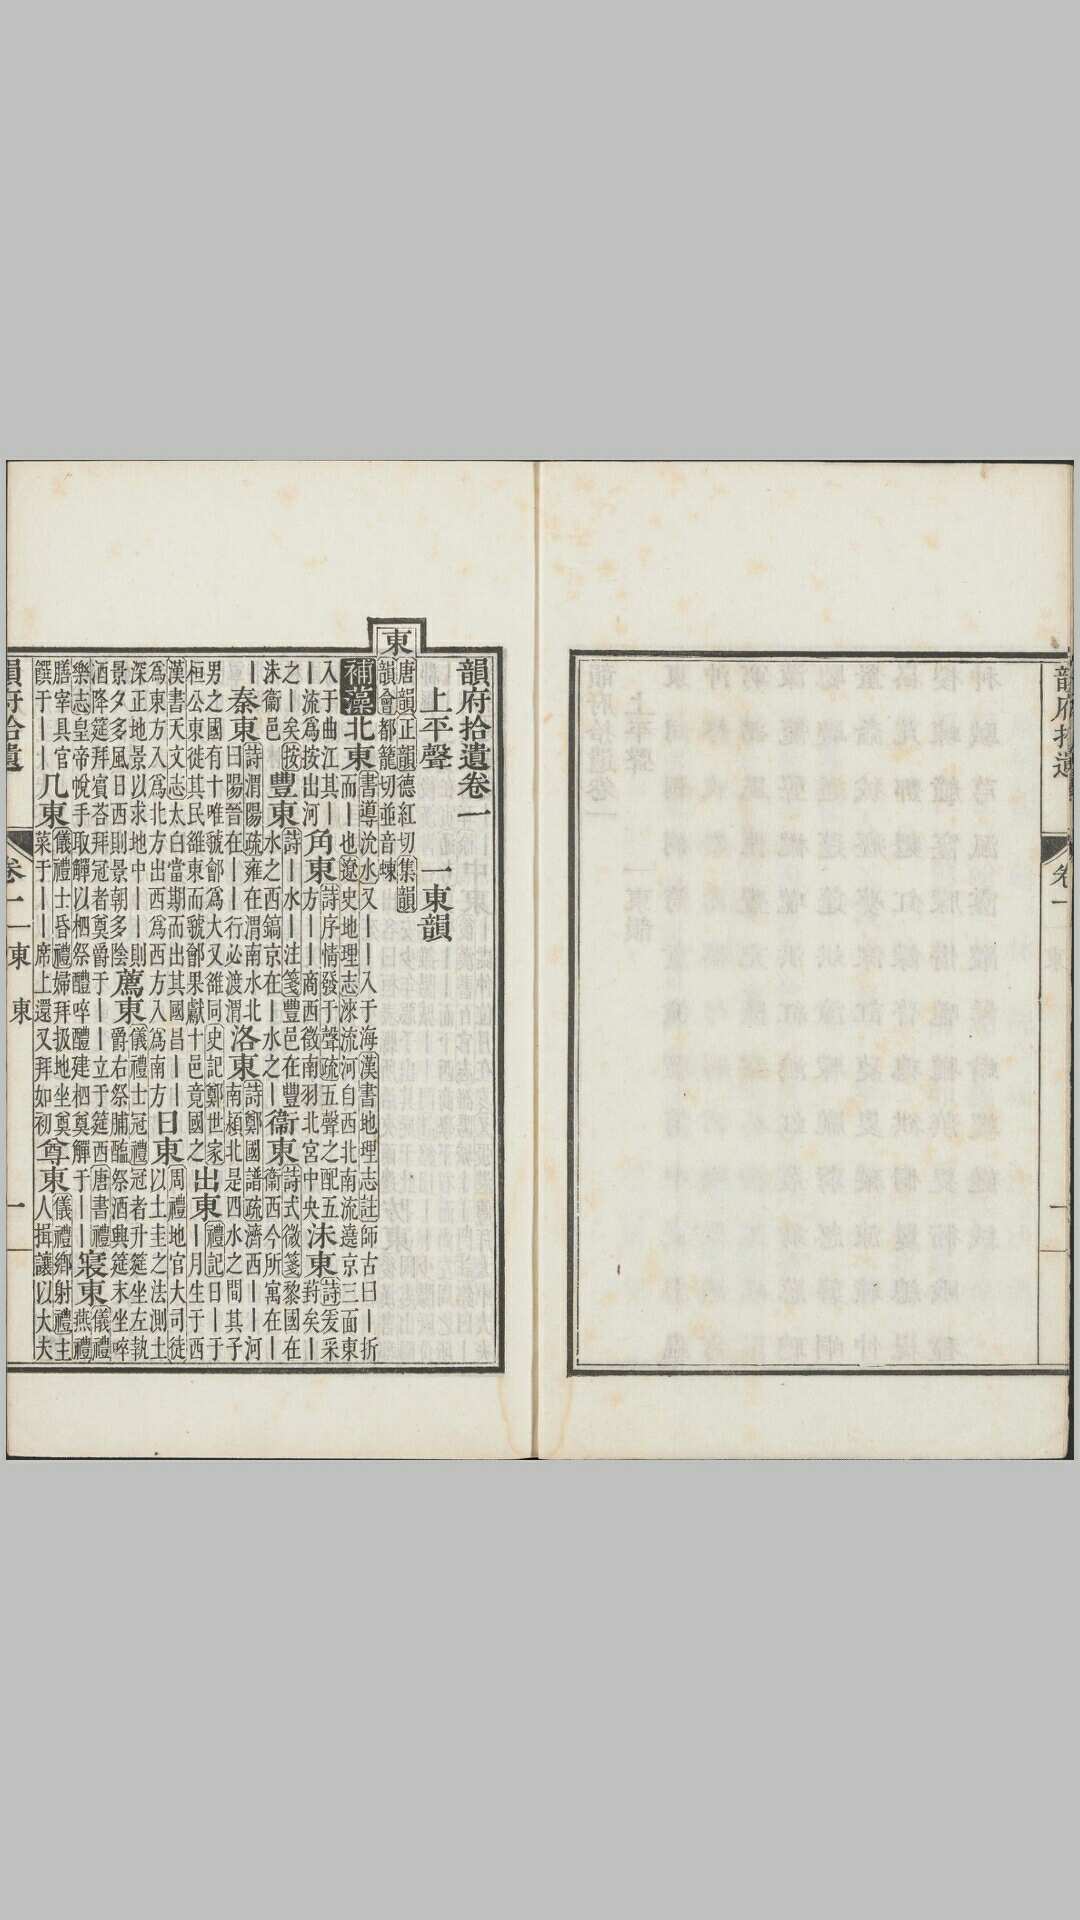 韻府拾遺
卷一
一
韻府拾遺卷一
上平聲 一東韻
東
唐韻正韻德紅切集韻
韻會都籠切並音蝀
補藻
北東
書導沇水又丨丨入于海漢書地理志註師古曰丨折
而丨也遼史地理志淶流河自西北南流遶京三面東
入于曲江其丨
丨流爲按出河
角東
詩序情發于聲疏五聲之配五
方丨丨商西徵南羽北宮中央
沬東
詩爰采
葑矣丨
之丨矣按
沬衞邑
豐東
詩丨水丨丨注箋豐邑在豐
水之西鎬京在丨水之丨
衞東
詩式微箋黎國在
衞西今所寓在丨
丨
秦東
詩渭陽疏雍在渭南水北
曰陽晉在丨丨行必渡渭
洛東
詩鄭國譜疏濟西丨丨河
南潁北是四水之間其子
男之國有十唯虢鄶爲大又雒同史記鄭世家
桓公東徙其民雒東而虢鄶果獻十邑竟國之
出東
禮記日丨于
丨月生于西
漢書天文志太白當期而出其國昌丨丨丨
爲東方入爲北方出西爲西方入爲南方
日東
周禮地官大司徒
以土圭之法測土
深正地景以求地中丨丨則
景夕多風日西則景朝多陰
薦東
儀禮士冠禮冠者升筵坐左執
爵右祭脯醢祭酒興筵末坐啐
酒降筵拜賓荅拜冠者奠爵于丨丨立于筵西唐書禮
樂志皇帝悅手取觶以柶祭醴啐醴建柶奠觶于丨丨
寢東
儀禮
燕禮
膳宰具官
饌于丨丨
几東
儀禮士昏禮婦拜扱地坐奠
菜于丨丨席上還又拜如初
尊東
儀禮鄉射禮主
人揖讓以大夫
韻府拾遺
卷一
一東
東
一